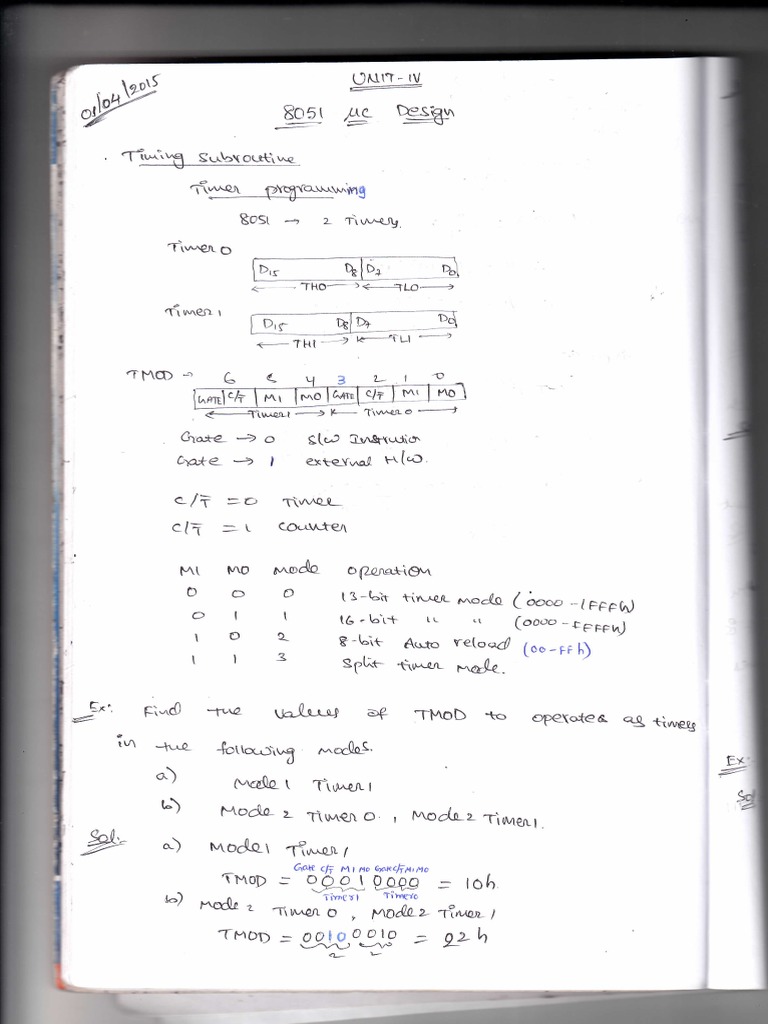 01/04/2015
UNIT-IV
8051 µc Design
Timing Subroutine
Timer programming
8051 → 2 Timers.
Timer 0
D15 D8 D7 D0
TH0 TL0
Timer 1
D15 D8 D7 D0
TH1 TL1
TMOD → 6 5 4 3 2 1 0
GATE C/T̅ M1 M0 GATE C/T̅ M1 M0
Timer1 Timer0
Gate → 0 S/W Instrution
Gate → 1 external H/W.
C/T̅ = 0 Timer
C/T̅ = 1 Counter
M1 M0 Mode operation
0 0 0 13-bit timer mode (0000-1FFFh)
0 1 1 16-bit " " (0000-FFFFh)
1 0 2 8-bit Auto reload (00-FFh)
1 1 3 Split timer mode.
Ex: Find the values of TMOD to operates as timers
in the following modes.
Ex:
a) Mode 1 Timer 1
Sol
b) Mode 2 Timer 0, Mode 2 Timer 1.
Sol: a) Mode 1 Timer 1
Gate C/T̅ M1 M0 Gate C/T̅ M1 M0
TMOD = 0001 0000 = 10h
Timer1 Timer0
b) Mode 2 Timer 0, Mode 2 Timer 1
TMOD = 0010 0010 = 22h
2 2